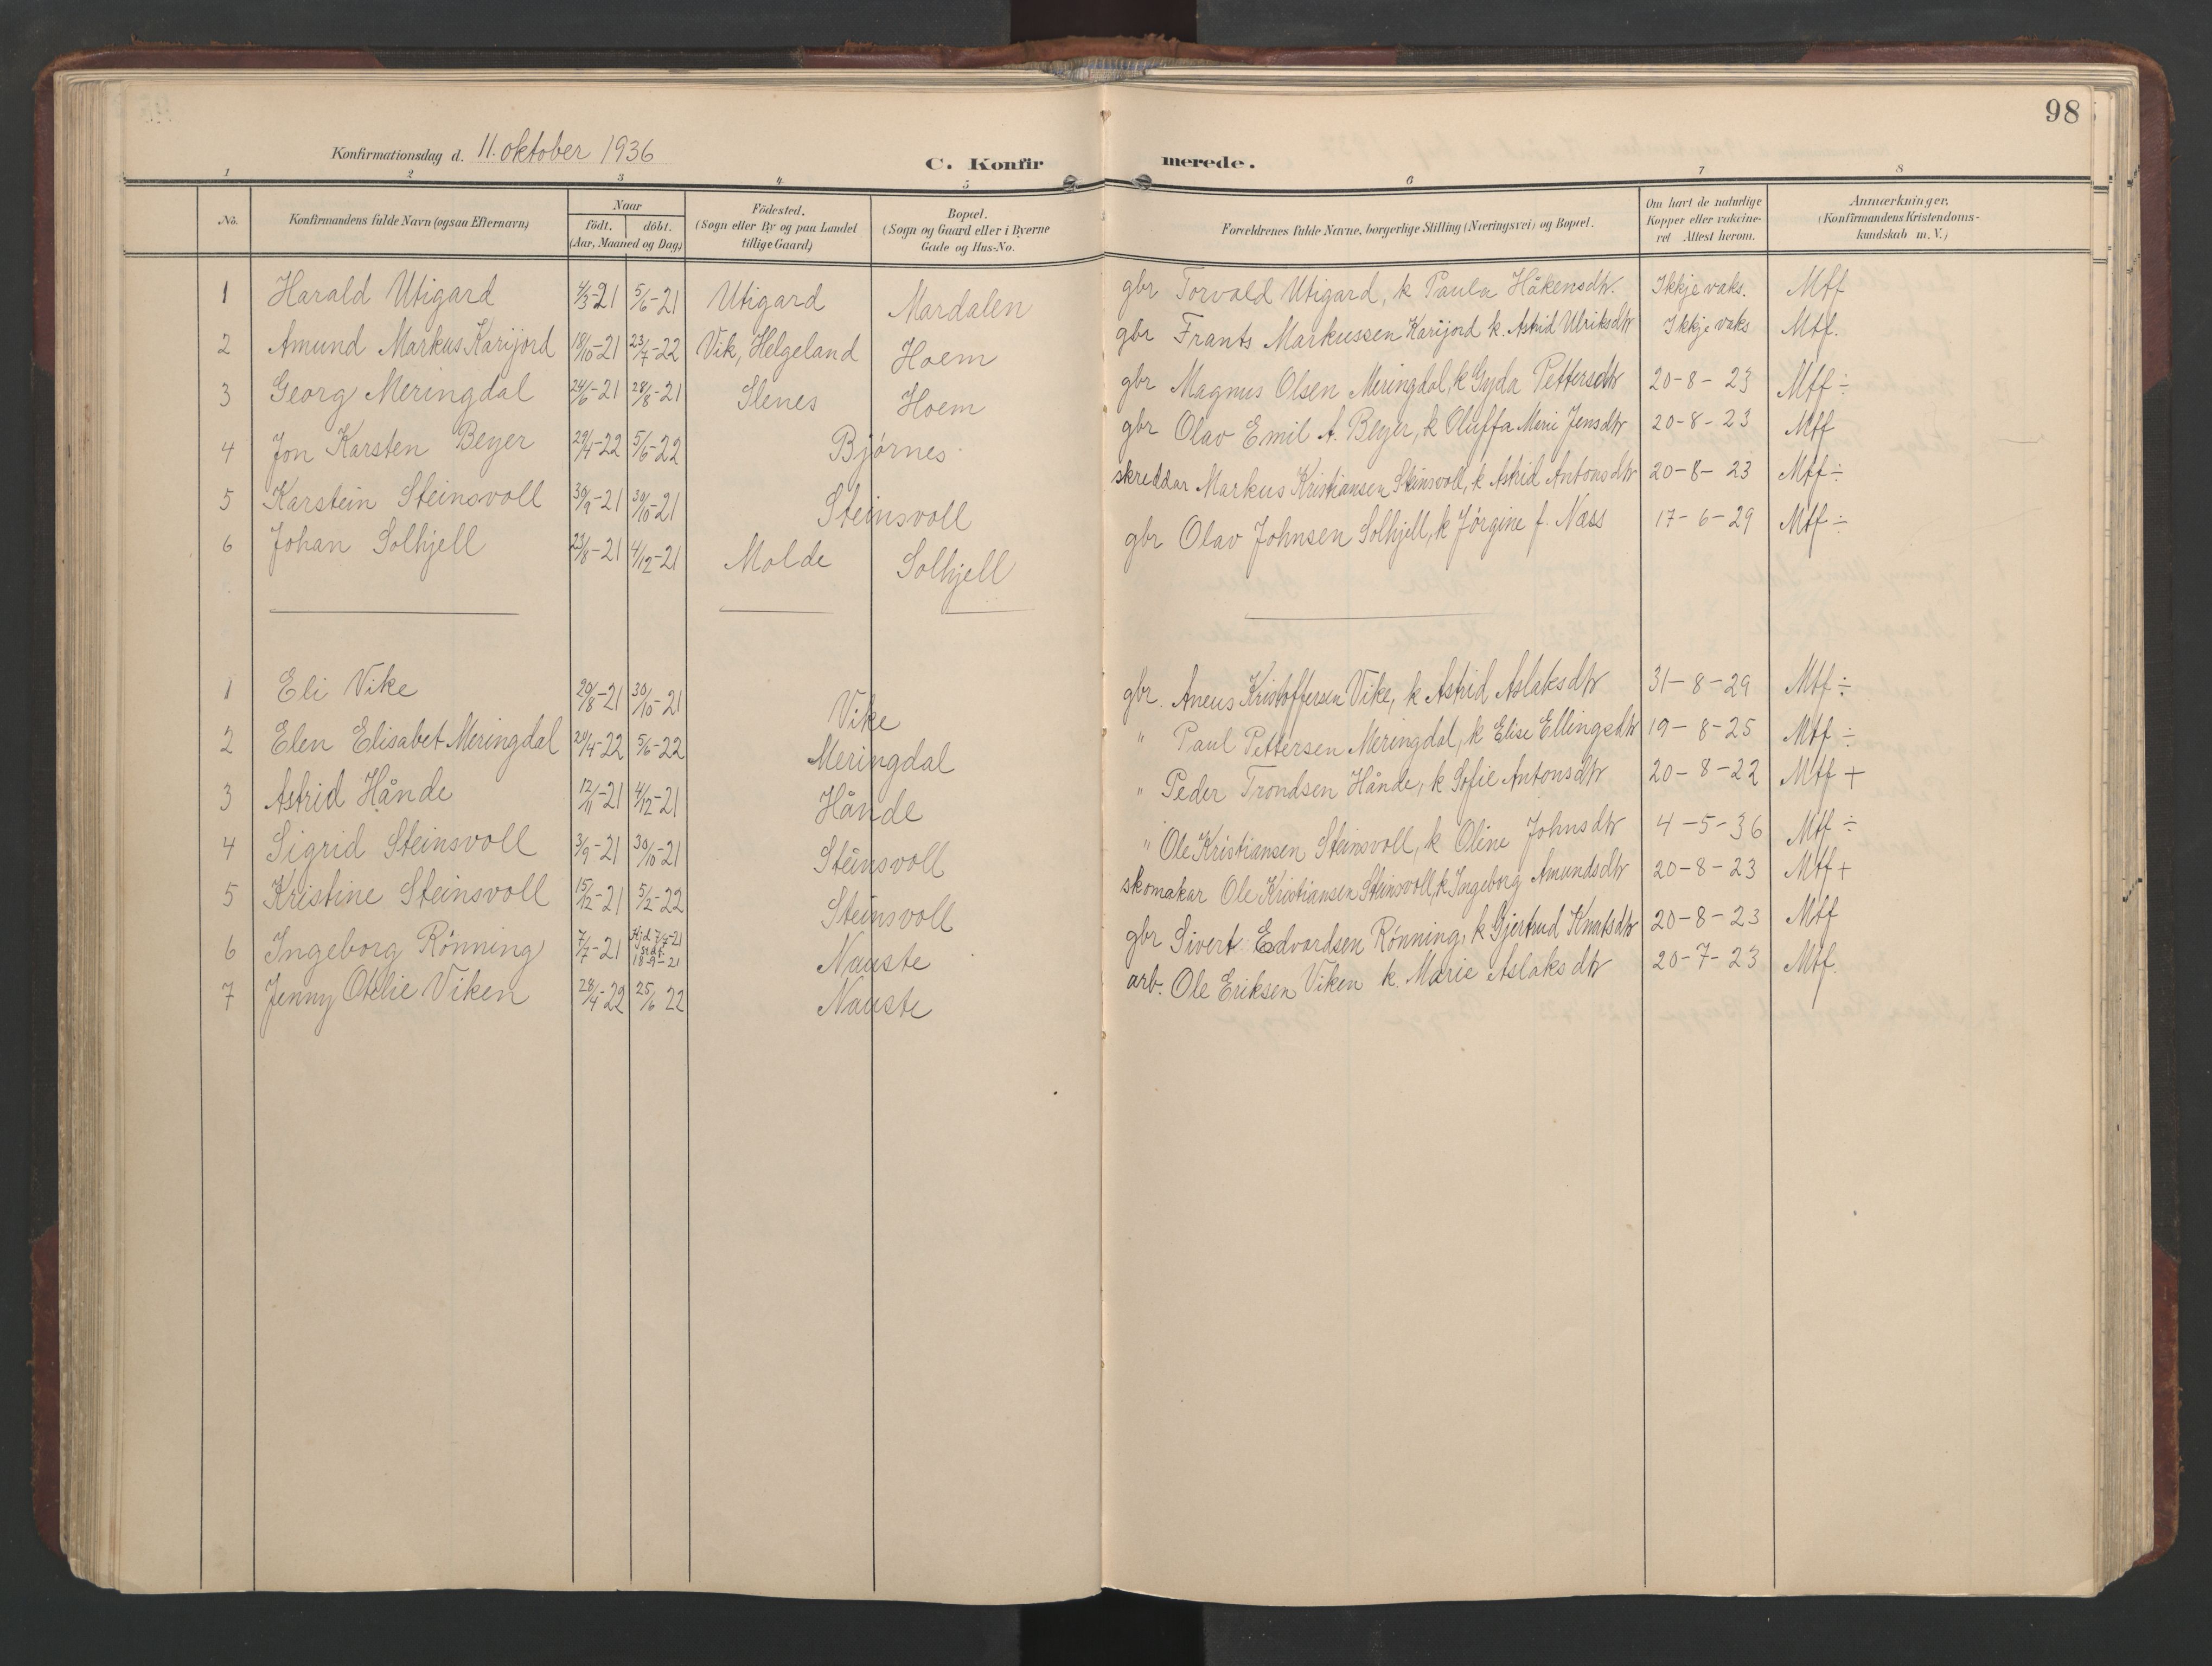 98
Konfirmationsdag d. 11. oktober 1936
C. Konfirmerede.
1 2 3 4 5 6 7 8
No. Konfirmandens fulde Navn (ogsaa Efternavn) Naar født. døbt. (Aar, Maaned og Dag) Födested. (Sogn eller By og paa Landet tillige Gaard) Bopæl. (Sogn og Gaard eller i Byerne Gade og Hus-No. Forældrenes fulde Navne, borgerlige Stilling (Næringsvei) og Bopæl. Om havt de naturlige Kopper eller vakcineret Attest herom. Anmærkninger, (Konfirmandens Kristendomskundskab m. V.)
1 Harald Utigard 4/3-21 5/6-21 Utigard Mardalen gbr Torvald Utigard, k Paula Håkensdtr. Ikkje vaks. Mtf
2 Amund Markus Karijord 18/10-21 23/7-22 Vik, Helgeland Hoem gbr Frants Markussen Karijord k. Astrid Ulriksdtr Ikkje vaks Mtf.
3 Georg Meringdal 24/6-21 28/8-21 Slenes Hoem gbr Magnus Olsen Meringdal, k Gyda Pettersdtr 20-8-23 Mtf ÷
4 Jon Karsten Beyer 29/4-22 5/6-22 Bjørnes gbr Olav Emil A. Beyer, k Oluffa Merie Jensdtr 20-8-23 Mtf
5 Karstein Steinsvoll 30/9-21 30/10-21 Steinsvoll skreddar Markus Kristiansen Steinsvoll, k Astrid Antonsdtr 20-8-23 Mtf ÷
6 Johan Solhjell 23/8-21 4/12-21 Molde Solhjell gbr Olav Johnsen Solhjell, k Jørgine f. Næss 17-6-29 Mtf ÷
1 Eli Vike 20/8-21 30/10-21 Vike gbr. Aneus Kristoffersen Vike, k Astrid Aslaksdtr 31-8-29 Mtf ÷
2 Elen Elisabet Meringdal 20/4-22 5/6-22 Meringdal " Paul Pettersen Meringdal, k Elise Ellingsdtr 19-8-25 Mtf ÷
3 Astrid Hånde 12/11-21 4/12-21 Hånde " Peder Trondsen Hånde, k Sofie Antonsdtr 20-8-22 Mtf +
4 Sigrid Steinsvoll 3/9-21 30/10-21 Steinsvoll " Ole Kristiansen Steinsvoll, k Oline Johnsdtr 4-5-36 Mtf ÷
5 Kristine Steinsvoll 15/12-21 5/2-22 Steinsvoll skomakar Ole Kristiansen Steinsvoll, k Ingeborg Amundsdtr 20-8-23 Mtf +
6 Ingeborg Rönning 7/7-21 Hjd 7/7-21 stdf. 18-9-21 Nauste gbr Sivert Edvardsen Rönning, k Gjertrud Knutsdtr 20-8-23 Mtf
7 Jenny Otelie Viken 28/4-22 25/6 22 Nauste arb. Ole Eriksen Viken k. Marie Aslaksdtr 20-7-23 Mtf.